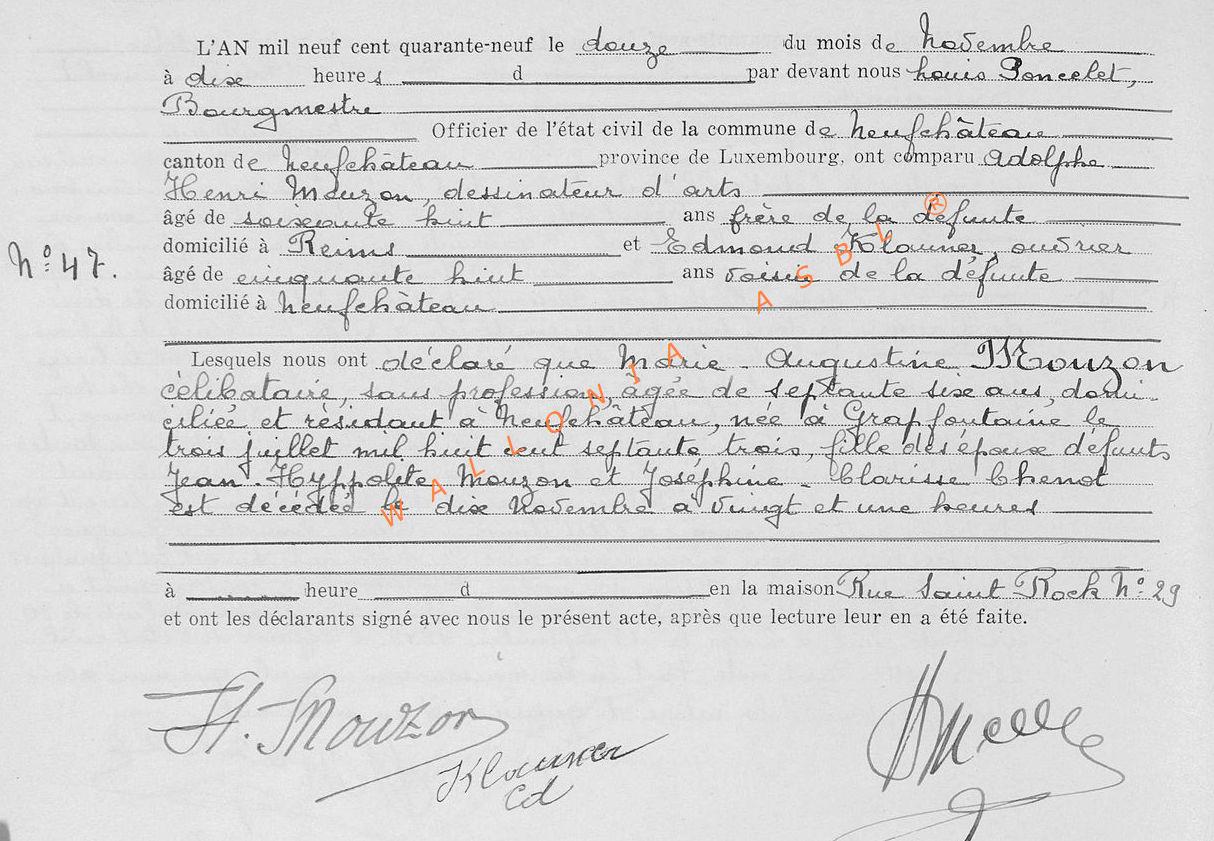 L'AN mil neuf cent quarante-neuf le douze du mois de Novembre
à dix heures d par devant nous Louis Poncelet,
Bourgmestre
Officier de l'état civil de la commune de Neufchâteau
canton de Neufchâteau province de Luxembourg, ont comparu Adolphe
Henri Mouzon, dessinateur d'arts
âgé de soixante huit ans frère de la défunte
domicilié à Reims et Edmond Klauner, ouvrier
N° 47.
âgé de cinquante huit ans voisin de la défunte
domicilié à Neufchâteau
Lesquels nous ont déclaré que Marie-Augustine Mouzon
célibataire, sans profession, âgée de septante six ans, domi-
ciliée et résidant à Neufchâteau, née à Grapfontaine le
trois juillet mil huit cent septante trois, fille des époux défunts
Jean-Hyppolite Mouzon et Joséphine-Clarisse Chenot
est décédée le dix Novembre à vingt et une heures
à heure d en la maison Rue Saint Rock N° 29
et ont les déclarants signé avec nous le présent acte, après que lecture leur en a été faite.
H. Mouzon
Klauner
Ed
WALLONIA ASBL ®